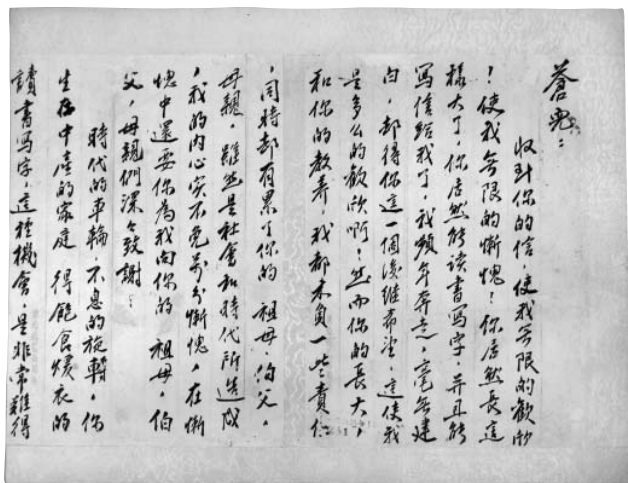 蒼兒：
收到你的信，使我無限的歡欣
！使我無限的慚愧！你居然長這
樣大了，你居然能读書寫字，并且能
寫信給我了，我頻年奔走，毫無建
白，却得你這一個後継希望，這使我
是多么的歡欣啊！然而你的長大，
和你的教养，我都未負一些責任
，同時却有累了你的 祖母，伯父，
母親，雖然是社會和時代所造成
，我的内心实不免萬分慚愧，在慚
愧中還要你為我向你的 祖母，伯
父，母親們深々致謝：
時代的車輪，不息的旋轉，你
生在中產的家庭 得飽食煖衣的
讀書寫字，這種機會，是非常難得